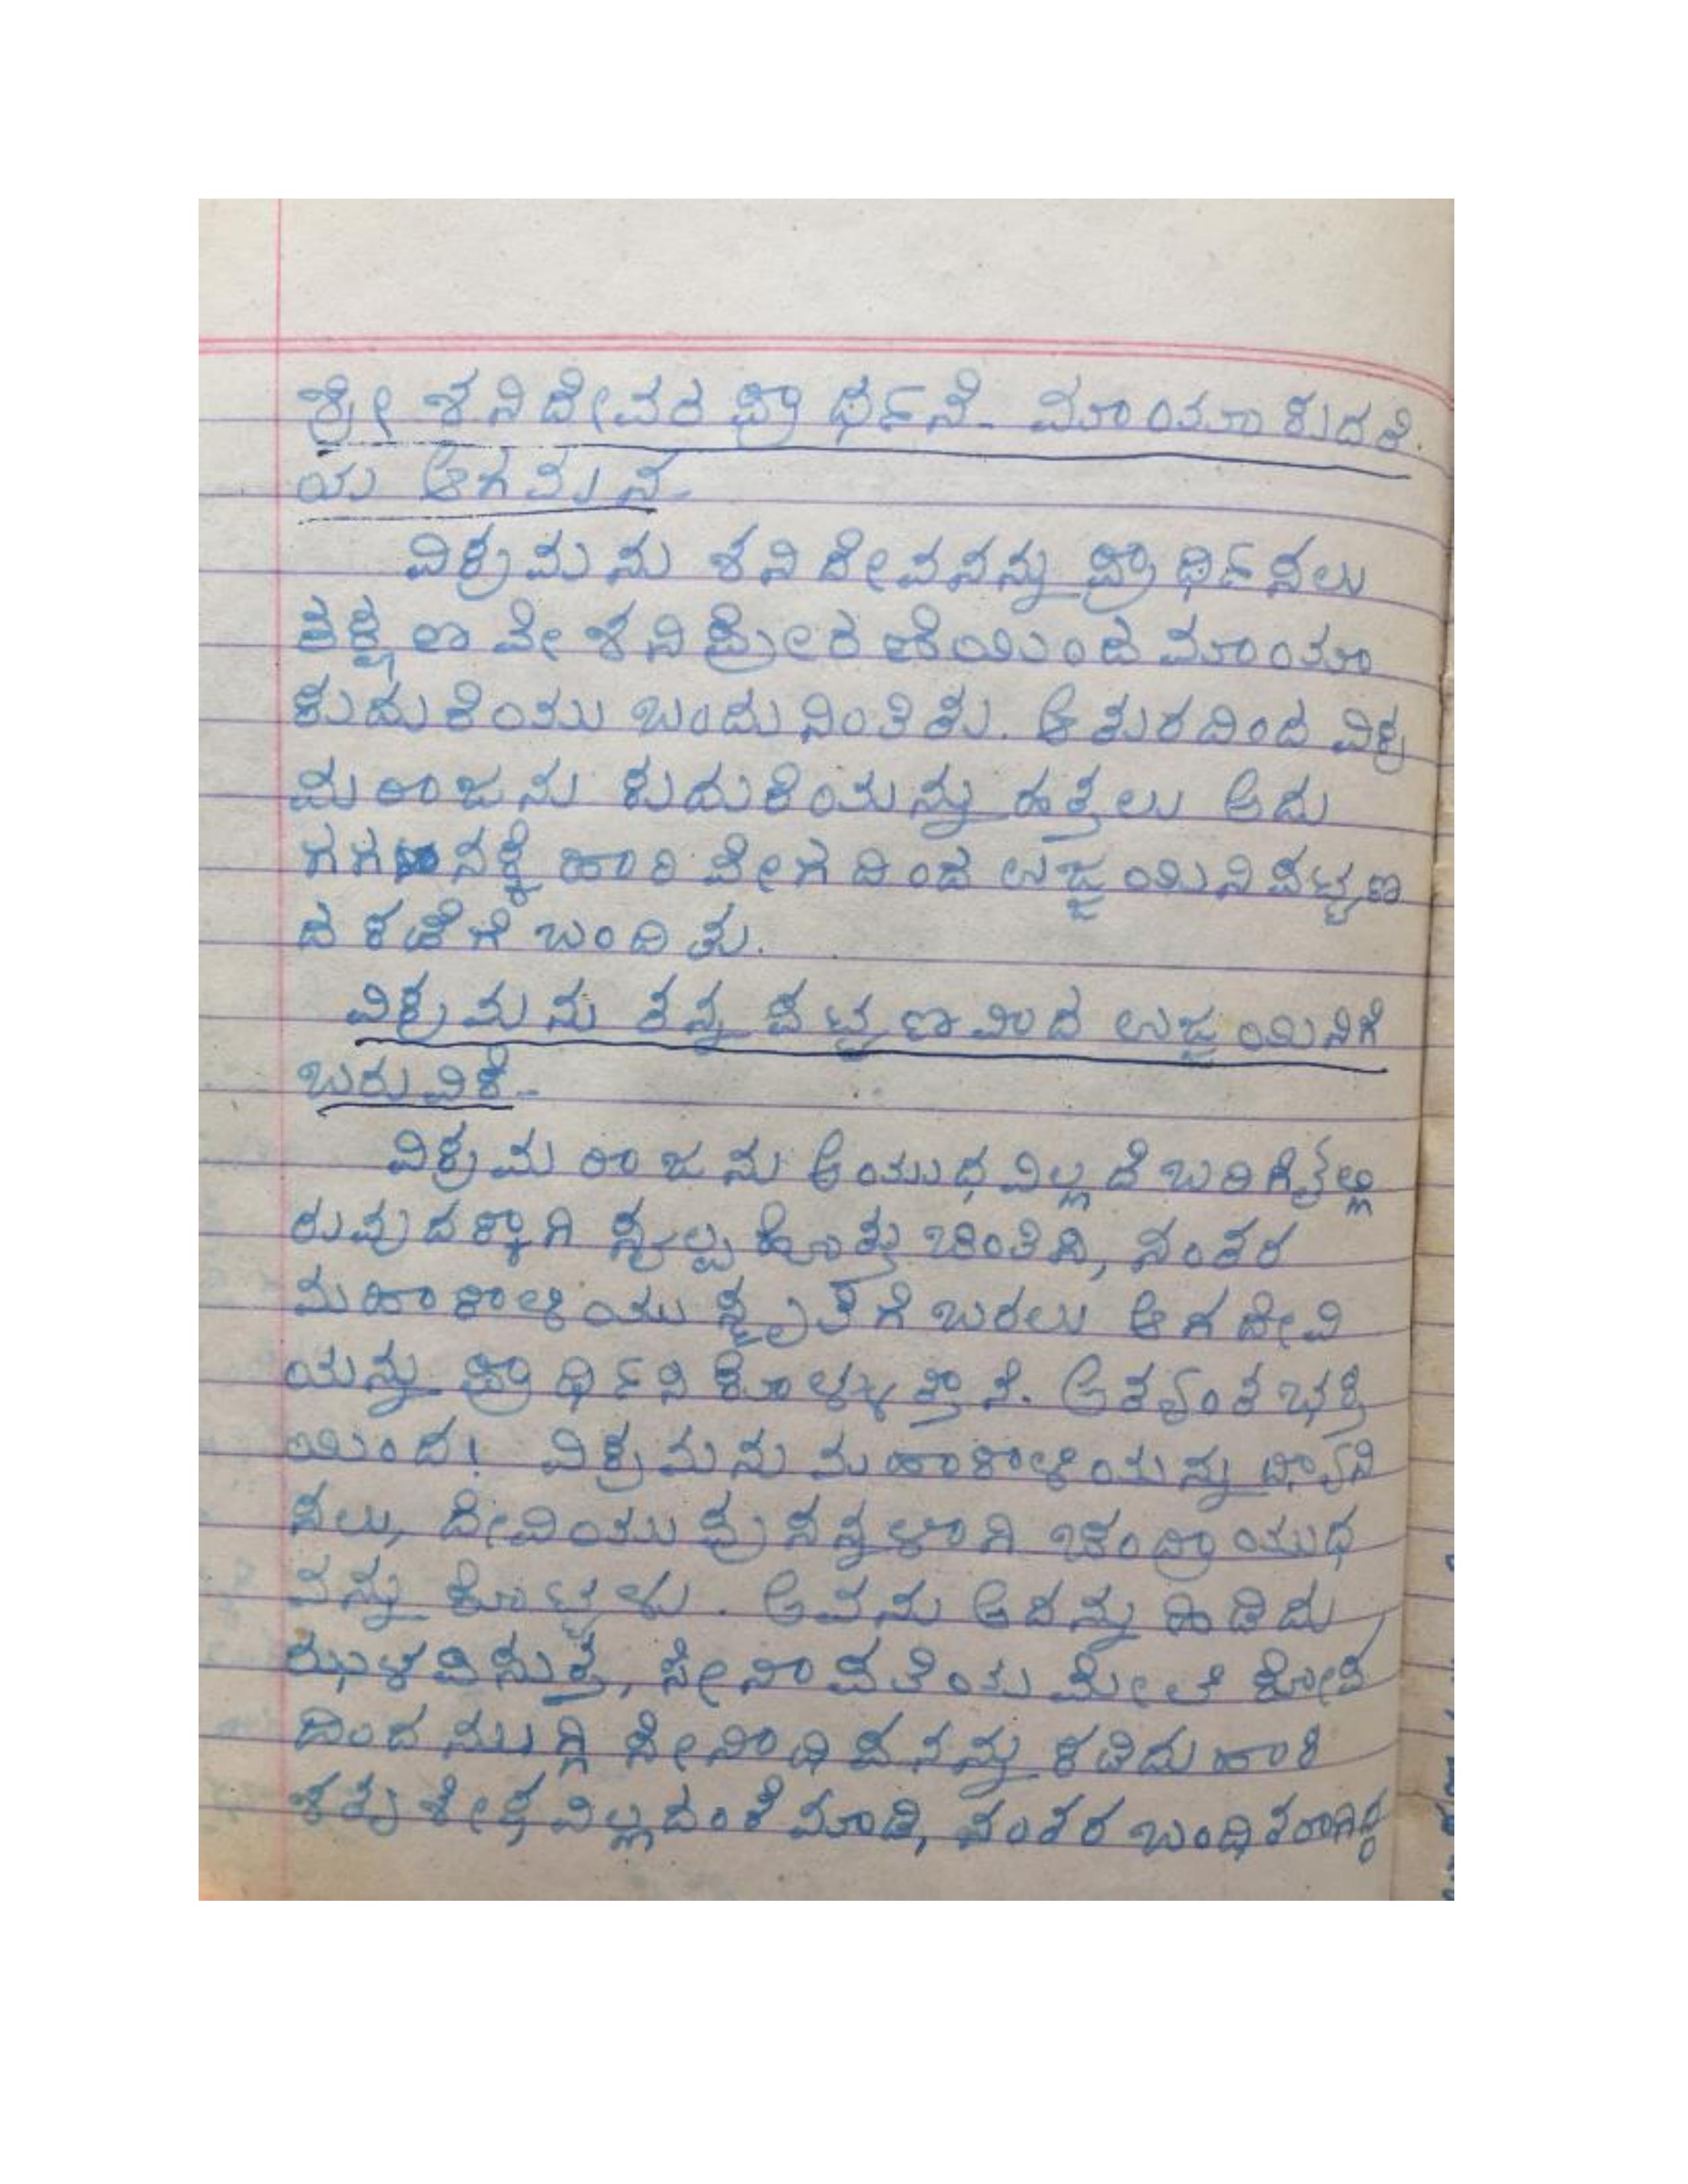 ಶ್ರೀ ಶನಿದೇವರ ಪ್ರಾರ್ಥನೆ- ಮಾಯಾಕುದರೆ
ಯ ಆಗಮನ-
ವಿಕ್ರಮನು ಶನಿದೇವನನ್ನು ಪ್ರಾರ್ಥಿಸಲು
ತಕ್ಷಣವೇ ಶನಿಪ್ರೇರಣೆಯಿಂದ ಮಾಯಾ
ಕುದುರೆಯು ಬಂದು ನಿಂತಿತು. ಆತುರದಿಂದ ವಿಕ್ರ
ಮರಾಜನು ಕುದುರೆಯನ್ನು ಹತ್ತಲು ಅದು
ಗಗನಕ್ಕೆ ಹಾರಿ ವೇಗದಿಂದ ಉಜ್ಜಯಿನಿ ಪಟ್ಟಣ
ದ ಕಡೆಗೆ ಬಂದಿತು.
ವಿಕ್ರಮನು ತನ್ನ ಪಟ್ಟಣವಾದ ಉಜ್ಜಯಿನಿಗೆ
ಬರುವಿಕೆ-
ವಿಕ್ರಮರಾಜನು ಆಯುಧವಿಲ್ಲದೆ ಬರಿಗೈಲ್ಲಿ
ರುವುದಕ್ಕಾಗಿ ಸ್ವಲ್ಪ ಹೊತ್ತು ಚಿಂತಿಸಿ, ನಂತರ
ಮಹಾಕಾಳಿಯು ಸ್ಮೃತಿಗೆ ಬರಲು ಆಗ ದೇವಿ
ಯನ್ನು ಪ್ರಾರ್ಥಿಸಿಕೊಳ್ಳುತ್ತಾನೆ. ಅತ್ಯಂತ ಭಕ್ತಿ
ಯಿಂದ! ವಿಕ್ರಮನು ಮಹಾಕಾಳಿಯನ್ನು ಧ್ಯಾನಿ
ಸಲು, ದೇವಿಯು ಪ್ರಸನ್ನಳಾಗಿ ಚಂದ್ರಾಯುಧ
ವನ್ನು ಕೊಟ್ಟಳು. ಅವನು ಅದನ್ನು ಹಿಡಿದು
ಝಳಪಿಸುತ್ತ, ಸೇನಾಪತಿಯ ಮೇಲೆ ಕೋಪ
ದಿಂದ ನುಗ್ಗಿ ಸೇನಾಧಿಪನನ್ನು ಕಡಿದು ಹಾಕಿ
ಶತ್ರು ಶೇಷವಿಲ್ಲದಂತೆ ಮಾಡಿ, ನಂತರ ಬಂಧಿತರಾಗಿದ್ದ